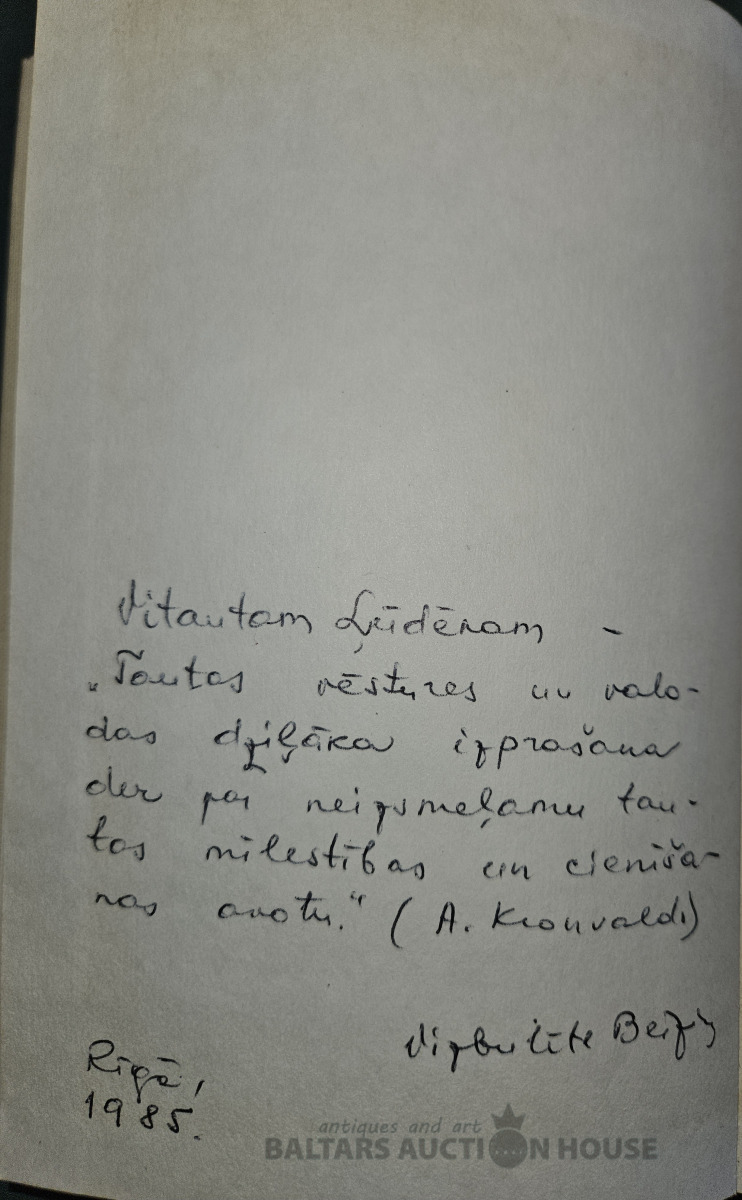 Vitautam Ļūdēnam –
„Tautas vēstures un valo-
das dziļāka izprašana
der par neizsmeļamu tau-
tas mīlestības un cienīša-
nas avotu." (A. Kronvalds)
Vizbulīte Bei
Rīgā,
1985.
antiques and art
BALTARS AUCTION HOUSE